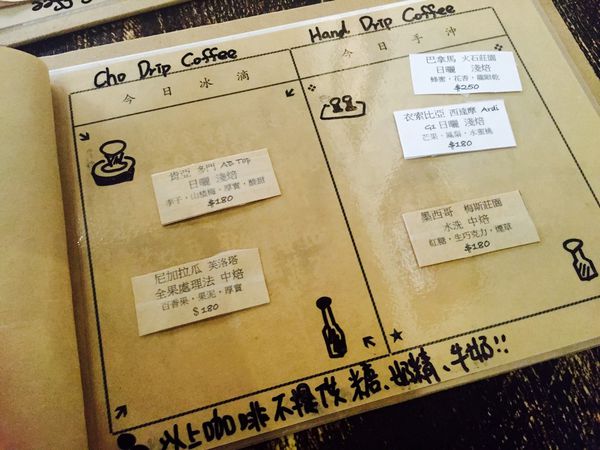 Cho Drip Coffee
今日冰滴
肯亞 多門 AB Top
日曬 淺焙
李子·山楂梅·厚實·酸甜
$180
尼加拉瓜 芙洛塔
全果處理法 中焙
百香果·果泥·厚實
$180
Hand Drip Coffee
今日手沖
巴拿馬 火石莊園
日曬 淺焙
蜂蜜·花香·龍眼乾
$250
衣索比亞 西達摩 Ardi
G1 日曬 淺焙
芒果·鳳梨·水蜜桃
$180
墨西哥 梅斯莊園
水洗 中焙
紅糖·生巧克力·煙草
$180
以上咖啡不提供 糖、奶精、牛奶!!